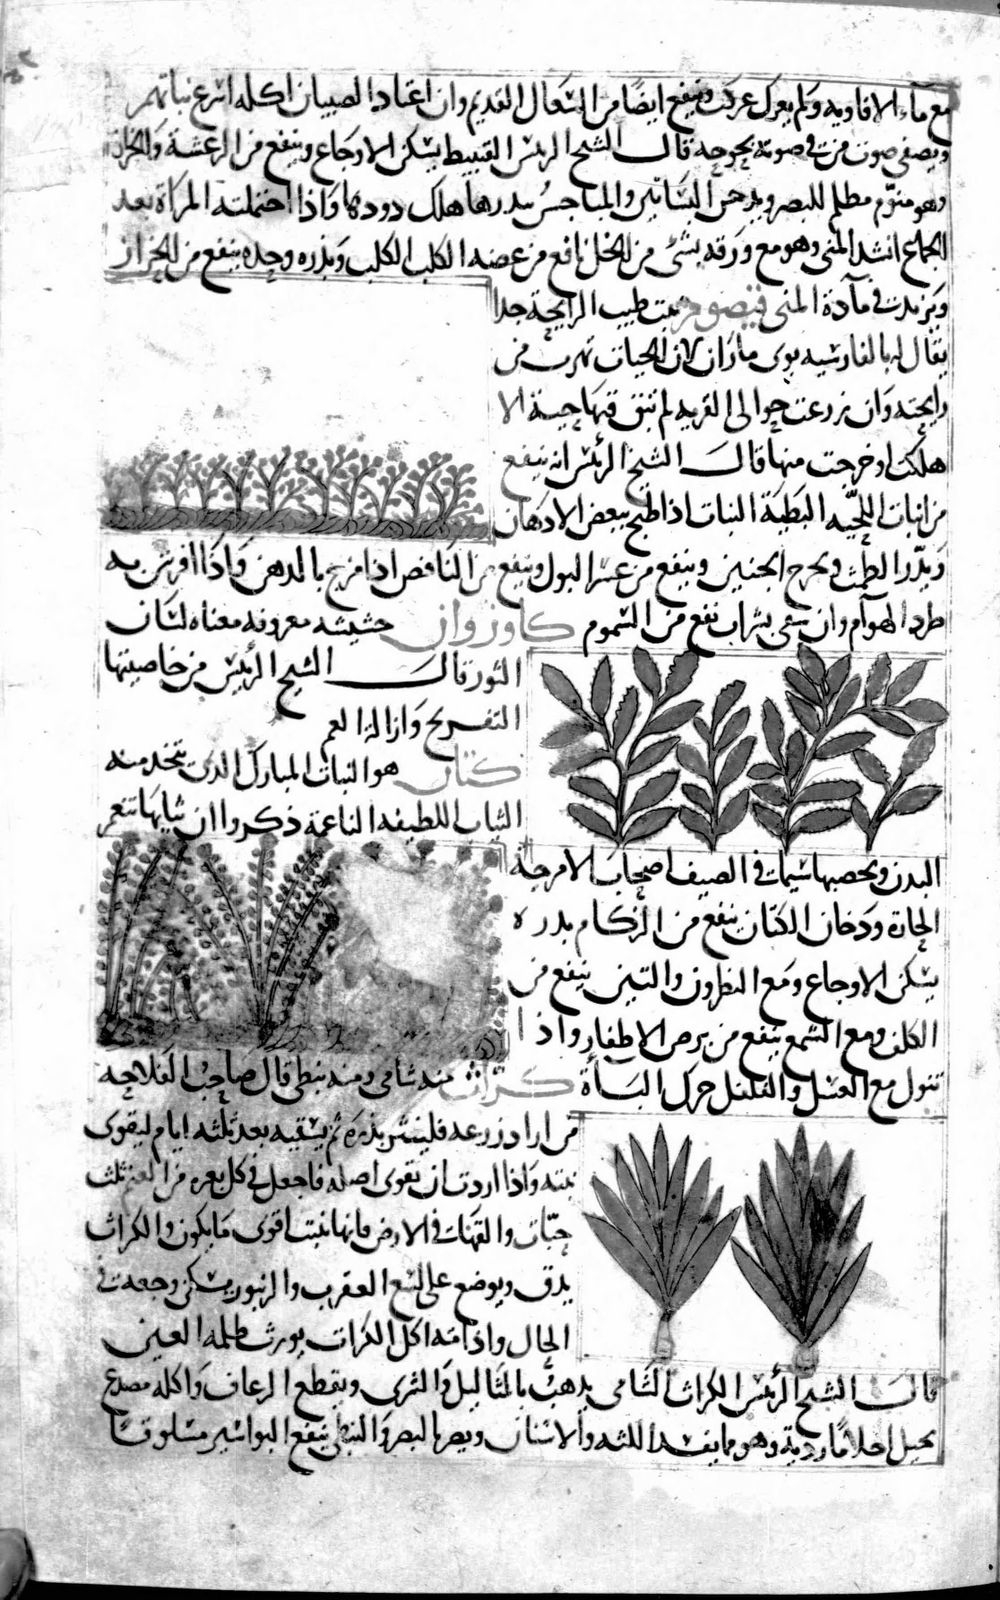 مع ماء الافاويه ولم يعرك عركت وينفع ايضا من السعال القديم وان اعتاد الصبيان اكله اسرع نباتهم
ويصفى صوت من في صوته بحوحه قال الشيخ الرئيس القنبيط يسكن الاوجاع وينفع من الرعشة والخزاز
وهو منوم مظلم للبصر ويدخن البساتين والمباخس ببذرها هلك دودها واذا احتملته المراة بعد
الجماع افسد المنى وهو مع ورقه بشئ من الخل نافع من عضه الكلب الكلب وبذره وحده ينفع من الخزاز
ويزيد في مادة المنى قيصوم نبت طيب الرايحة جدا
يقال له بالفارسيه بوى ماران لان الحيات تهرب من
رايحته وان زرعت حوالى القريه لم تبق فيها حية الا
هلكت او خرجت منها قال الشيخ الرئيس انه ينفع
من انبات اللحيه البطية النبات اذا طبخ ببعض الادهان
ويدر الطمث ويخرج الجنين وينفع من عسر البول وينفع من النافض اذا مزج بالدهن واذا افرش به
طرد الهوام وان سقى بشراب نفع من السموم كاوزوان حشيشه معروفه معناه لسان
الثور قال الشيخ الرئيس من خاصيتها
التفريح وازالة الغم
كتان هو النبات المبارك الذى يتخذ منه
الثياب اللطيفه الناعمة ذكروا ان ثيابها تنعم
البدن ويخصبها سيما في الصيف اصحاب الامزجة
الحارة ودخان الكتان ينفع من الزكام بذره
يسكن الاوجاع ومع النطرون والتين ينفع من
الكلف ومع الشمع ينفع من برص الاظفار واذا
تنول مع العسل والفلفل حرك الباة كراث منه شامى ومنه نبطى قال صاحب الفلاحة
من اراد زرعه فلينثر بذره ثم يسقيه بعد ثلثه ايام ليقوى
نبته واذا اردت ان تقوى اصله فاجعل في كل بعره من الغنم ثلث
حبات والقهات في الارض فانها تنبت اقوى ما يكون والكراث
يدق ويوضع على لسع العقرب والزنبور يسكن وجعه في
الحال وادامة اكل الكراث يورث ظلمه العين
قال الشيخ الرئيس الكراث الشامى يذهب بالثاليل والشرى ويقطع الرعاف واكله مصدع
يخيل احلاما ردية وهو مما يفسد اللثه والاسنان ويضر بالبصر والنبطى ينفع البواسير مسلوقا